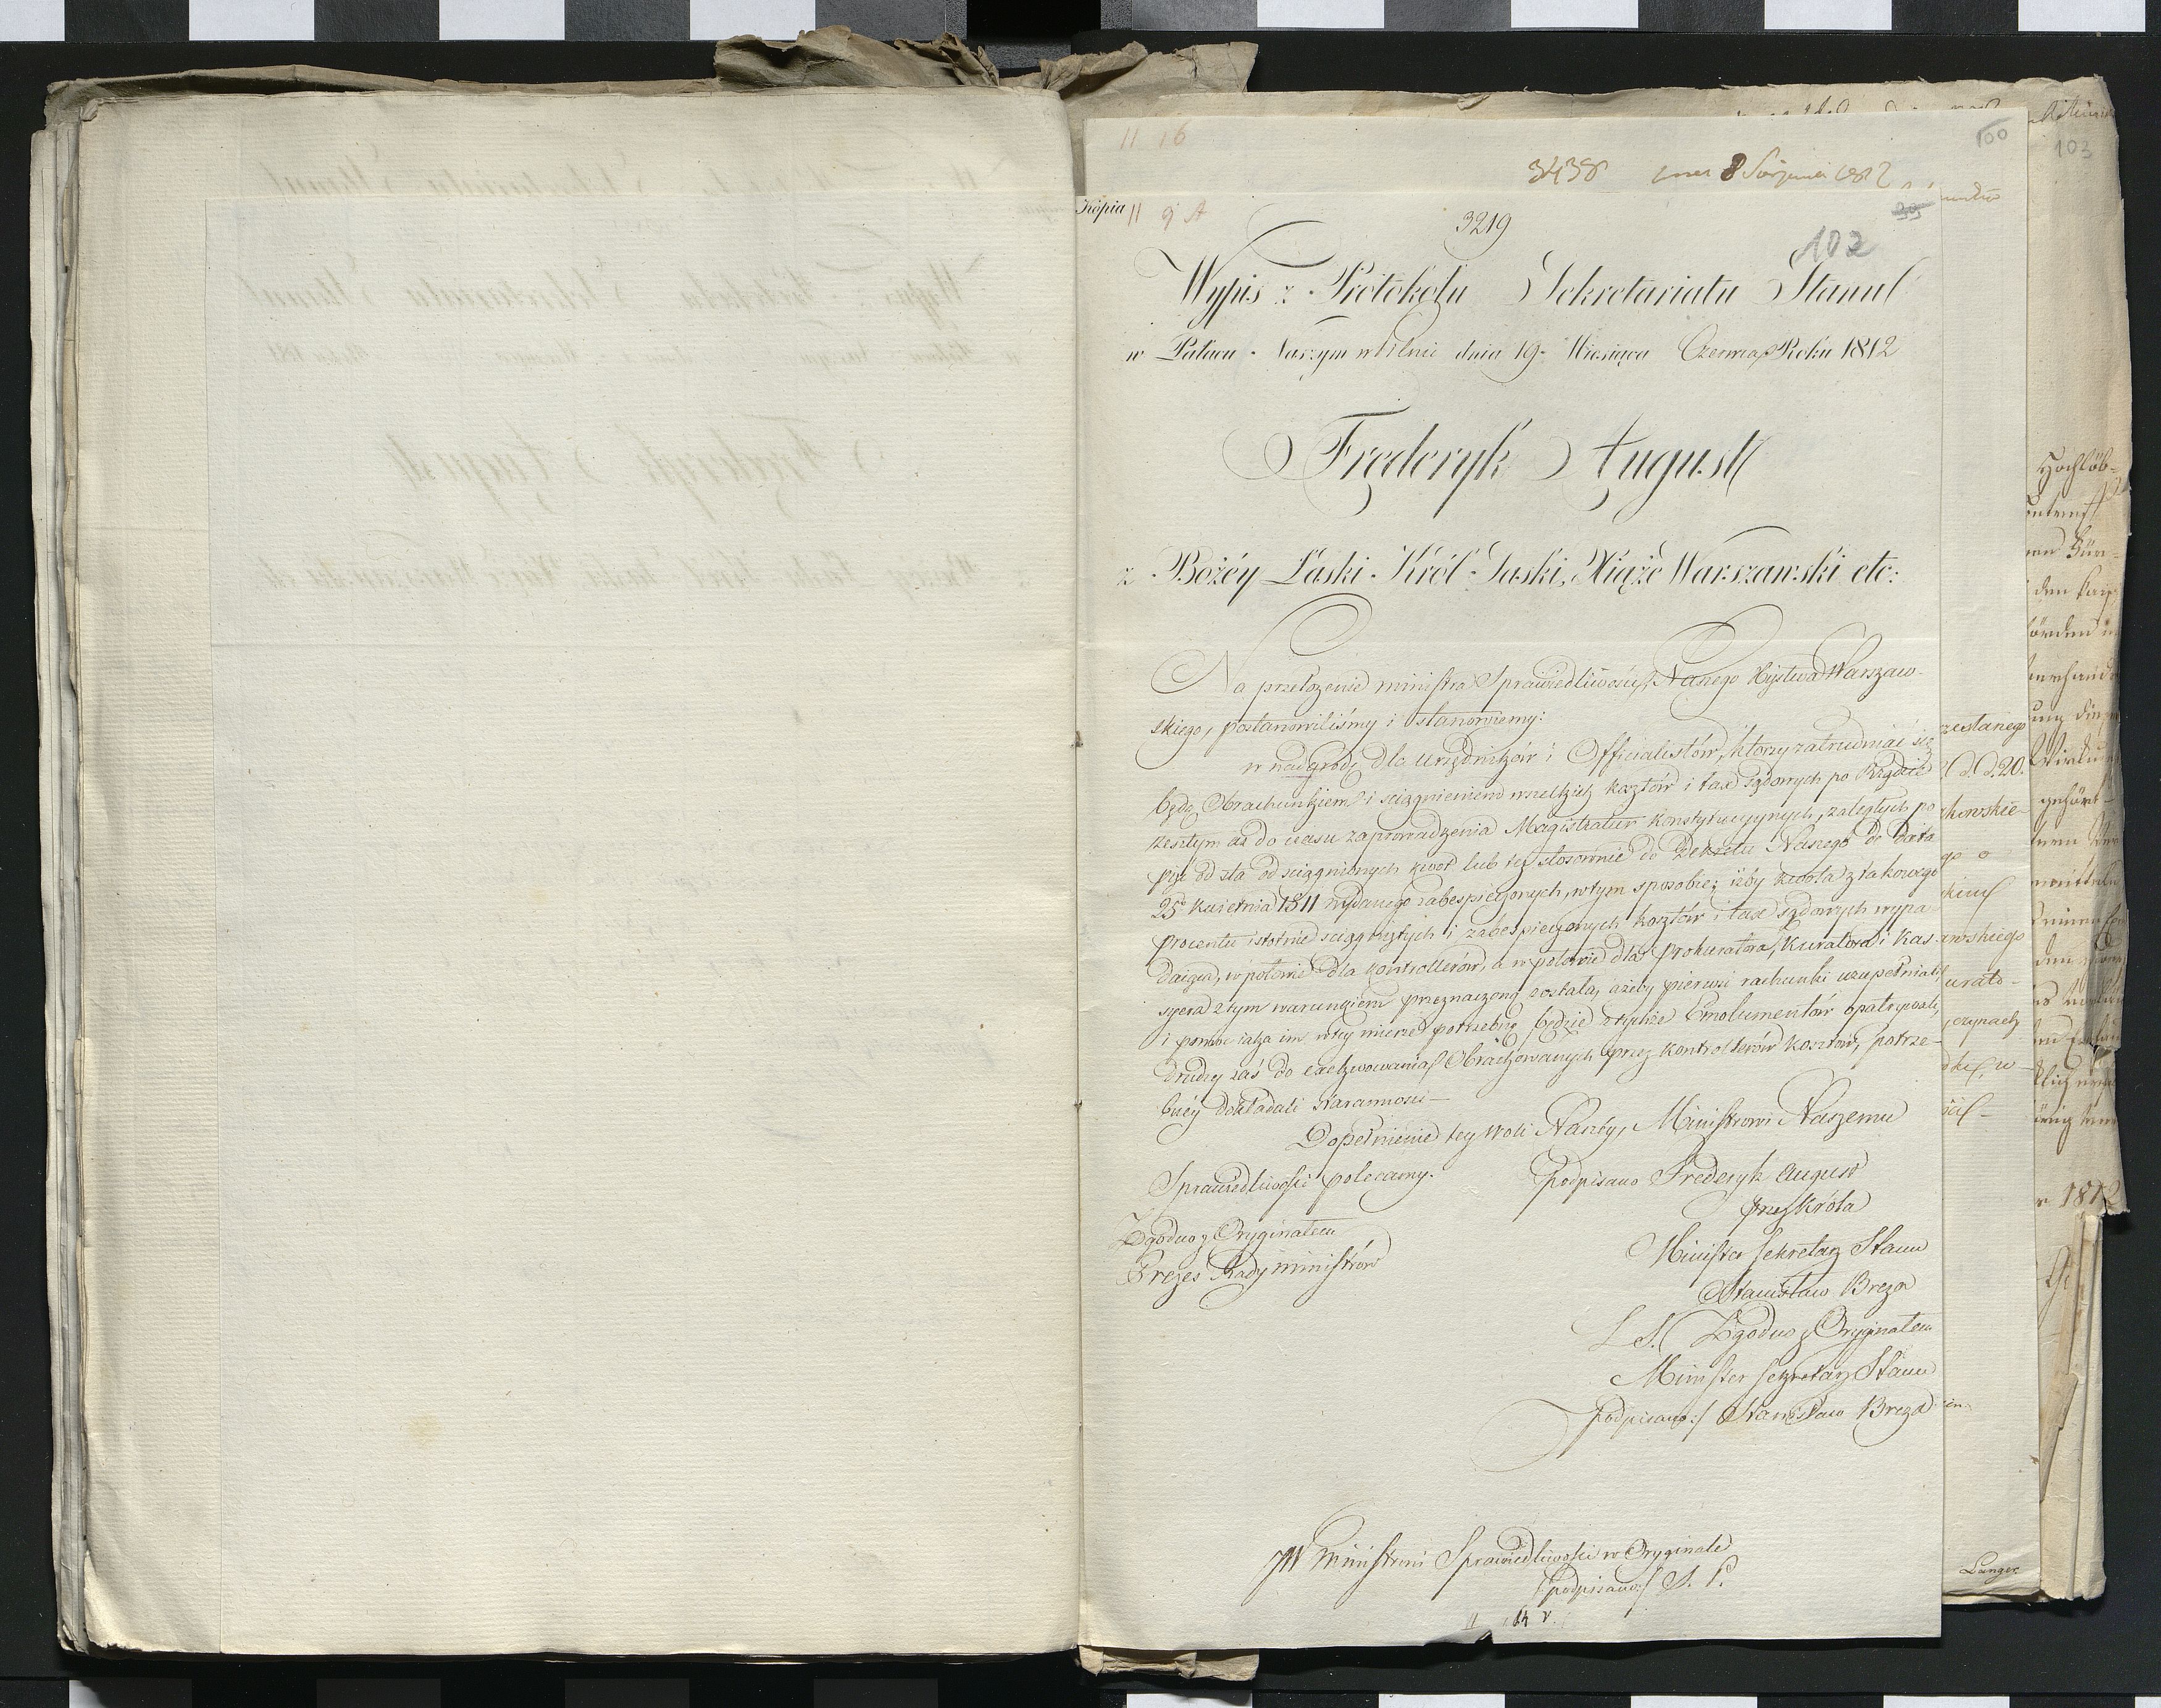 11 16
100
103
3438 8 Sierpnia 1812
Kopia 11 9 A
99
3219
102
Wypis z Protokołu Sekretariatu Stanu
w Pałacu Naszym w Pilnic dnia 19 Miesiąca Czerwca Roku 1812
Fryderyk August
z Bożéy Łaski Król Saski, Xiąże Warszawski etc:
Na przełożenie ministra Sprawiedliwości, Naszego Xięstwa Warszaw-
skiego, postanowiliśmy i stanowiemy:
w nadgrodę dla urzędników i Officialistów, którzy zatrudniać się
będą Obrachunkiem i sciągnieniem wszelkich kosztów i tax sądowych po Rządzie
zeszłym aż do czasu zaprowadzenia Magistratur Konstytucyynych, zaległych po
pięć od sta od sciągnionych kwot lub też stosownie do Dekretu Naszego de Dato
25 kwietnia 1811 wydanego zabespieczonych, w tym sposobie; iżby kwota z takowego
procentu istotnie sciągniętych i zabespieczonych kosztów i tax sądowych wypa-
daiąca, w połowie dla kontrollerów, a w połowie dla Prokuratora, Kuratora i Kas-
syera z tym warunkiem przeznaczoną została, ażeby pierwsi rachunki uzupełniali
i pomoc iaka im w tey mierze potrzebną będzie z tychże Emolumentów opatrywali,
drudzy zaś do exekwowania Obrachowanych przez kontrollerów kosztów, potrze-
bnéy dokładali staranności –
Dopełnienie tey Woli Naszéy, Ministrowi Naszemu
Sprawiedliwości polecamy.
Podpisano Frederyk August
przez Króla
Minister Sekretarz Stanu
Stanisław Breza
Zgodno z Oryginałem
Prezes Rady ministrów
L S. Zgodno z Oryginałem
Minister Sekretarz Stanu
podpisano:/ Stanisław Breza
JW Ministrowi Sprawiedliwości w Oryginale
/:podpisano:/ S. P.
11 14 v.
d. d. 20.
1812
Langer